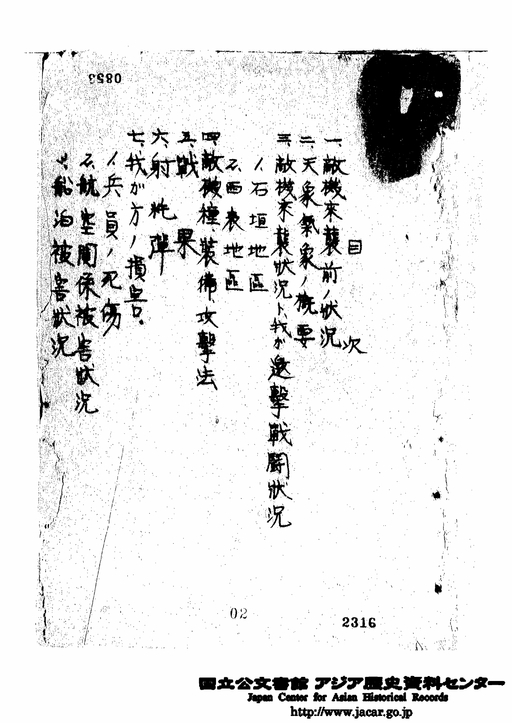 0853
目次
一、敵機来襲前ノ状況
二、天象氣象ノ概要
三、敵機来襲状況ト我ガ邀撃戰闘状況
1.石垣地區
2.西表地區
四、敵機種、装備、攻撃法
五、戰果
六、射耗彈
七、我ガ方ノ損害。
1.兵員ノ死傷
2.航空関係被害状況
3.船泊被害状況
02
2316
国立公文書館 アジア歴史資料センター
Japan Center for Asian Historical Records
http://www.jacar.go.jp